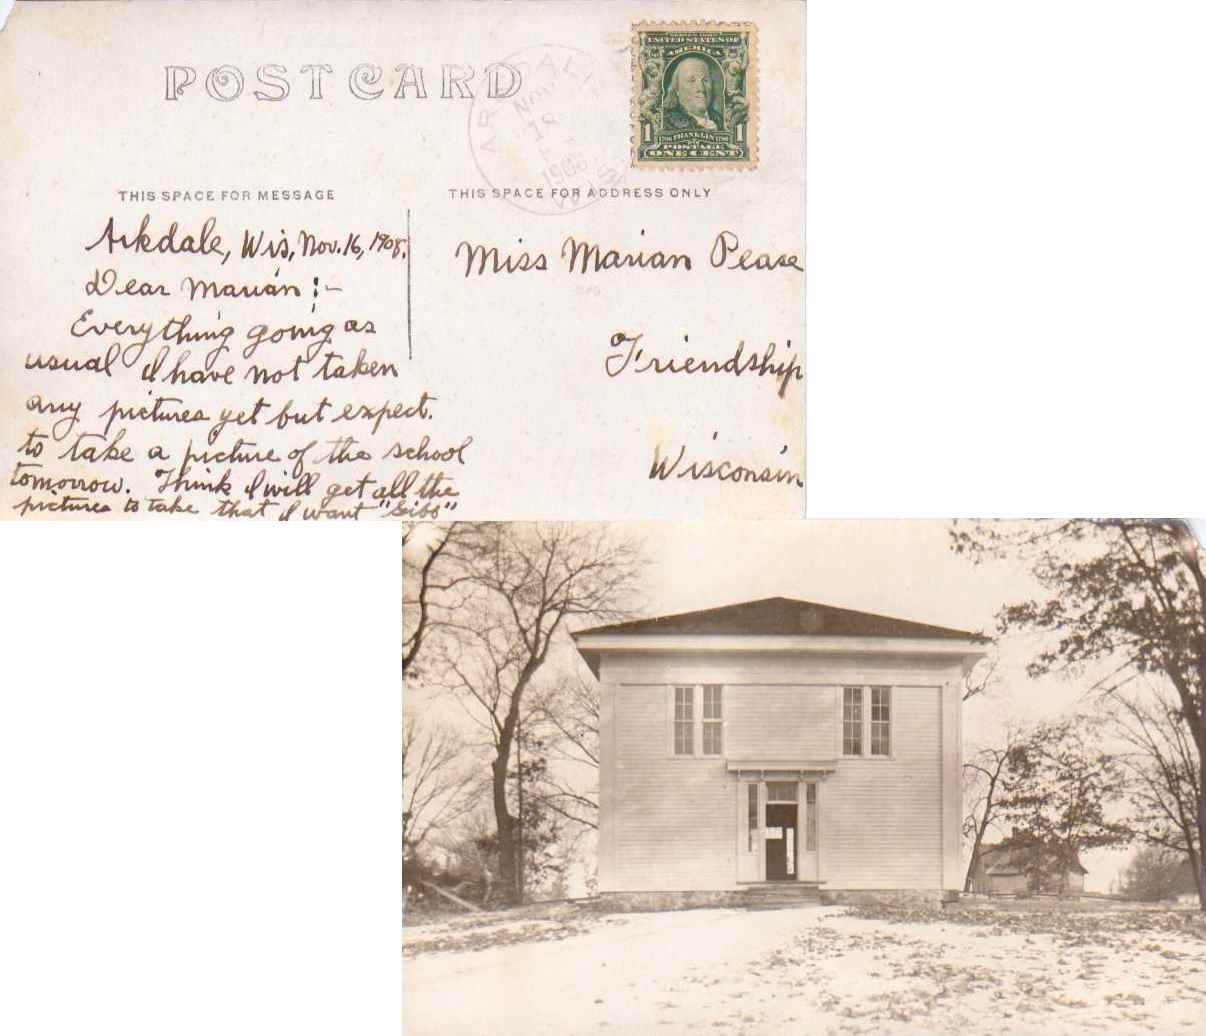 POSTCARD
SERIES 1902
UNITED STATES OF
AMERICA
1 FRANKLIN 1
POSTAGE
ONE CENT
ARKDALE
NOV
18
1908
WIS
THIS SPACE FOR MESSAGE
THIS SPACE FOR ADDRESS ONLY
Arkdale, Wis, Nov. 16, 1908.
Dear Marian :-
Everything going as
usual I have not taken
any pictures yet but expect.
to take a picture of the school
tomorrow. Think I will get all the
pictures to take that I want "Gibs"
Miss Marian Pease
Friendship
Wisconsin